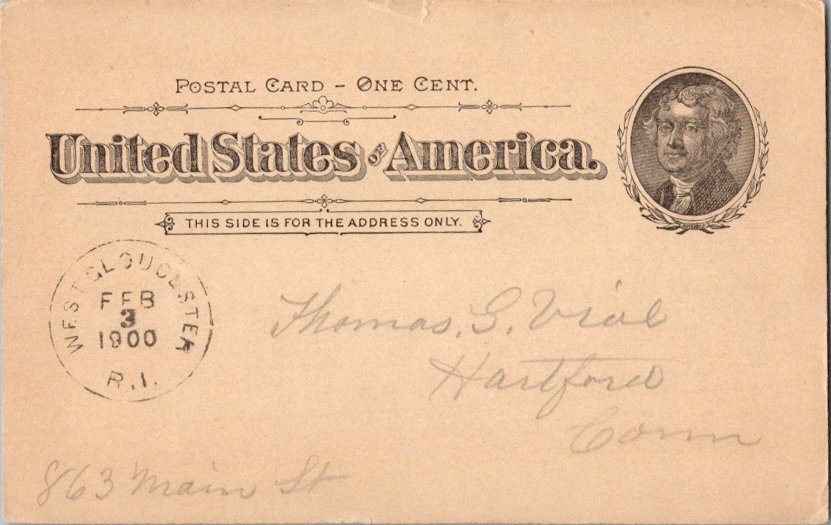 POSTAL CARD - ONE CENT.
United States OF America.
THIS SIDE IS FOR THE ADDRESS ONLY.
WEST GLOUCESTER
FEB
3
1900
R.I.
Thomas. G. Vial
Hartford
Conn
863 Main St